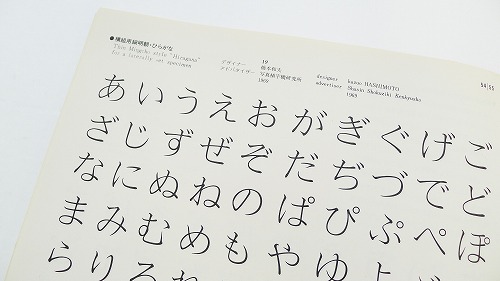 ●横組用細明朝・ひらがな
Thin Mincho style "Hiragana"
for a laterally set specimen
19
デザイナー 橋本和夫
アドバタイザー 写真植字機研究所
1969
designer kazuo HASHIMOTO
advertiser Shasin Shokuziki Kenkyusho
1969
54|55
あいうえおがぎぐげご
ざじずぜぞだぢづでど
なにぬねのぱぴぷぺぽ
まみむめもやゆよ
らりるれ